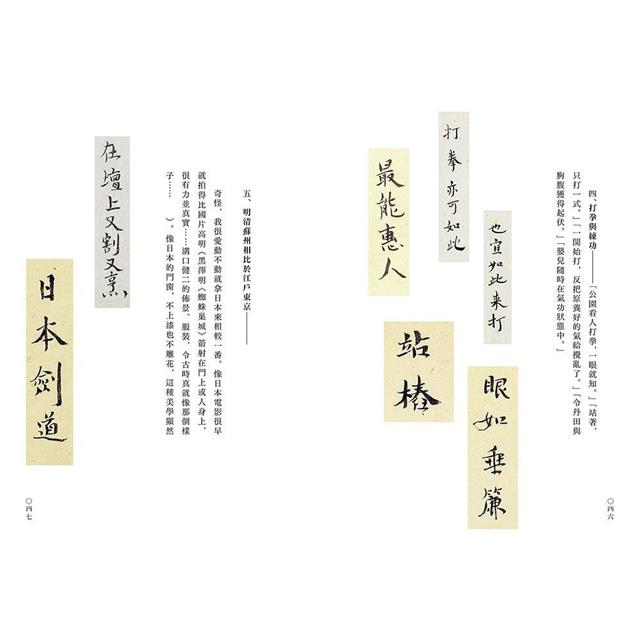 四、打拳與練功——「公園看人打拳，一眼就知。」「站著，
只打一式。」「一開始打，反把原養好的氣給攪亂了。」「令丹田與
胸腹獲得起伏。」「嬰兒隨時在氣功狀態中。」
也宜如此来打
眼如垂簾
打拳亦可如此
站樁
最能惠人
〇四六
五、明清蘇州相比於江戶東京——
奇怪，我很愛動不動就拿日本來相較一番。像日本電影很早
就拍得比國片高明（黑澤明《蜘蛛巢城》箭射在門上或人身上，
很有力並真實……溝口健二的佈景、服裝，令古時真就像那個樣
子……）。像日本的門窗，不上漆也不雕花，這種美學顯然
在壇上又割又烹
日本劍道
〇四七